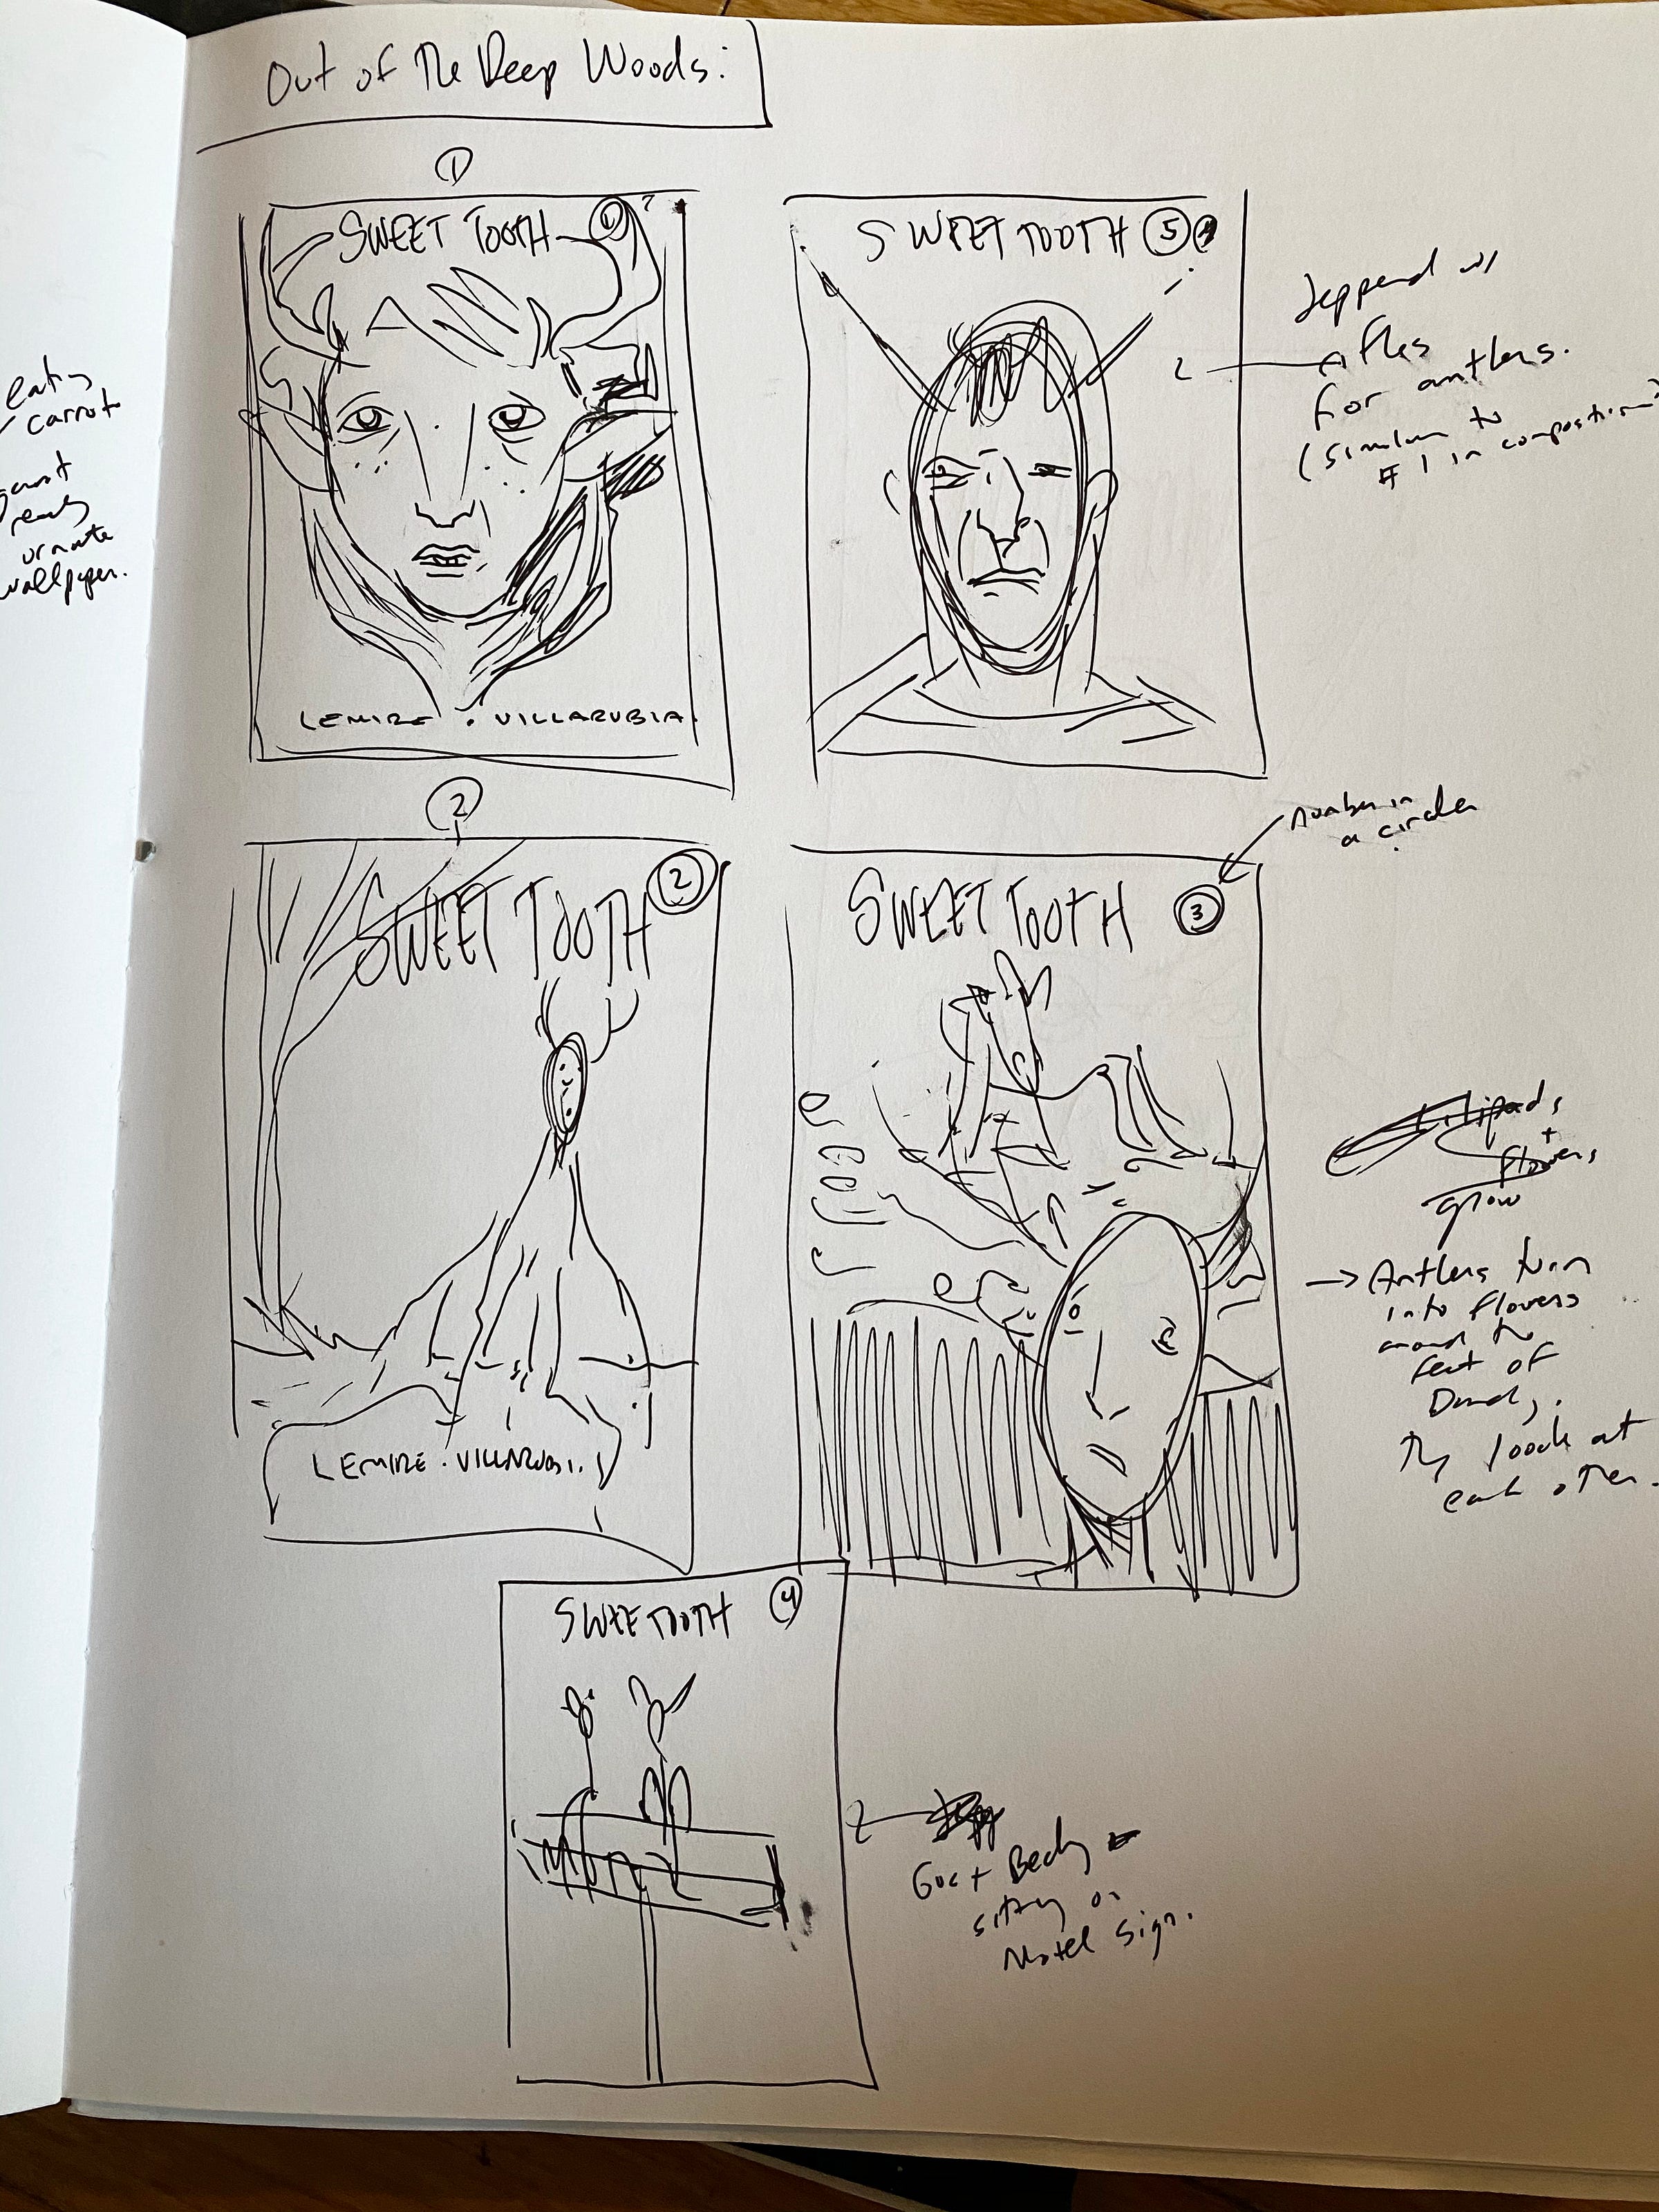 Out of The Deep Woods:
eating
carrot
against
ornate
wallpaper.
1
SWEET TOOTH 1 ?
LEMIRE . VILLARUBIA
SWEET TOOTH 5
Jeppard w/
rifles
for antlers.
(similar to
#1 in composition)
2
SWEET TOOTH 2
LEMIRE . VILLARUBI.
number in
a circle
SWEET TOOTH 3
lilipads
+
flowers
grow
→ Antlers turn
into flowers
around the
feet of
Dad,.
They look at
each other.
SWEE TOOTH 4
Motel
Gus + Becky
sitting on
Motel sign.